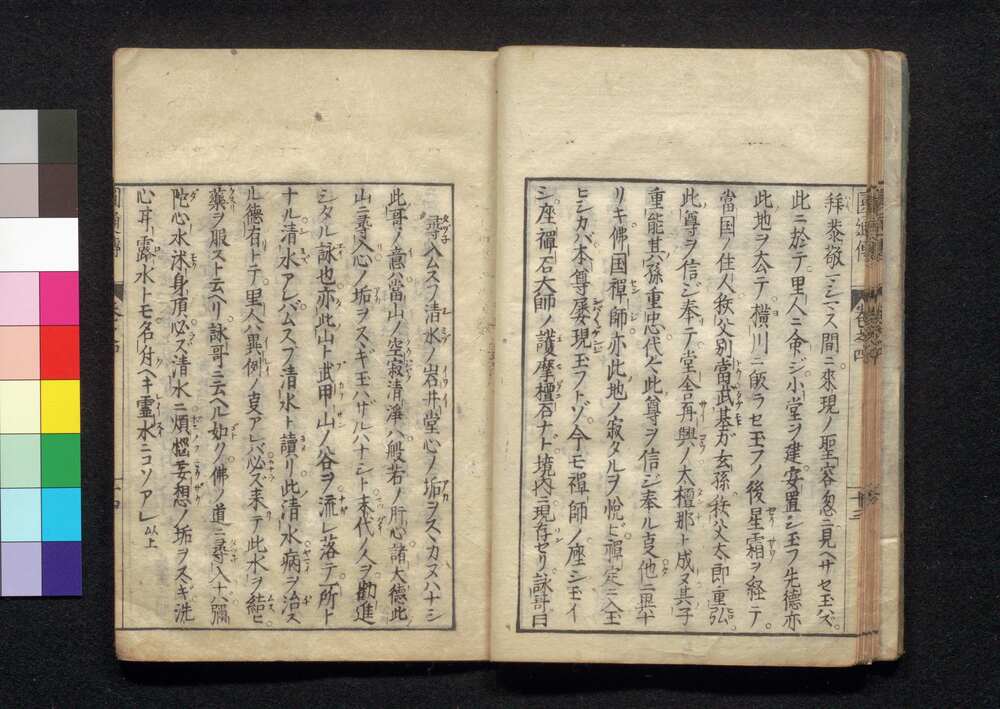 拜恭敬シマス間ニ來現ノ聖容忽ニ見ヘサセ玉ズ
此ニ於テ里人ニ命ジ小堂ヲ建安置シ玉フ先德亦
此地ヲ去テ橫川ニ皈ラセ玉フノ後星霜ヲ経テ
當国ノ住人秩父別當武基ガ玄孫秩父太郎重弘
此尊ヲ信ジ奉テ堂舎再興ノ大檀那ト成ヌ其子
重能其孫重忠代々此尊ヲ信シ奉ル㕝他ニ異ナ
リキ佛国禪師亦此地ノ寂タルヲ悅ビ禪定ニ入玉
ヒシカバ本尊屡現玉フトゾ今モ禪師ノ座シ玉イ
シ座禪石大師ノ護摩檀石ナト境内ニ現存セリ詠哥曰
尋入ムスフ清水ノ岩井堂心ノ垢ヲスヽカヌハナシ
此哥ノ意ハ當山ノ空寂清淨ハ般若ノ肝心諸大德此
山ニ尋入心ノ垢ヲスヽギ玉ハザルハナシト末代ノ人ヲ勸進
シタル詠也亦此山ト武甲ノ山ノ谷ヲ流レ落テ所ト
ナル清水アレバムスフ清水ト讀リ此清水病ヲ治ス
ル德有トテ里人ハ異例ノ㕝アレバ必ス来テ此水ヲ結ヒ
藥ヲ服スト云ヘリ詠哥ニ云ヘル如クノ佛ノ道ニ尋入ナハ彌
陀心水沐身頂必ス清水ニ煩惱妄想ノ垢ヲスヽギ洗
心耳露水トモ名付ヘキ靈水ニコソアレ以上